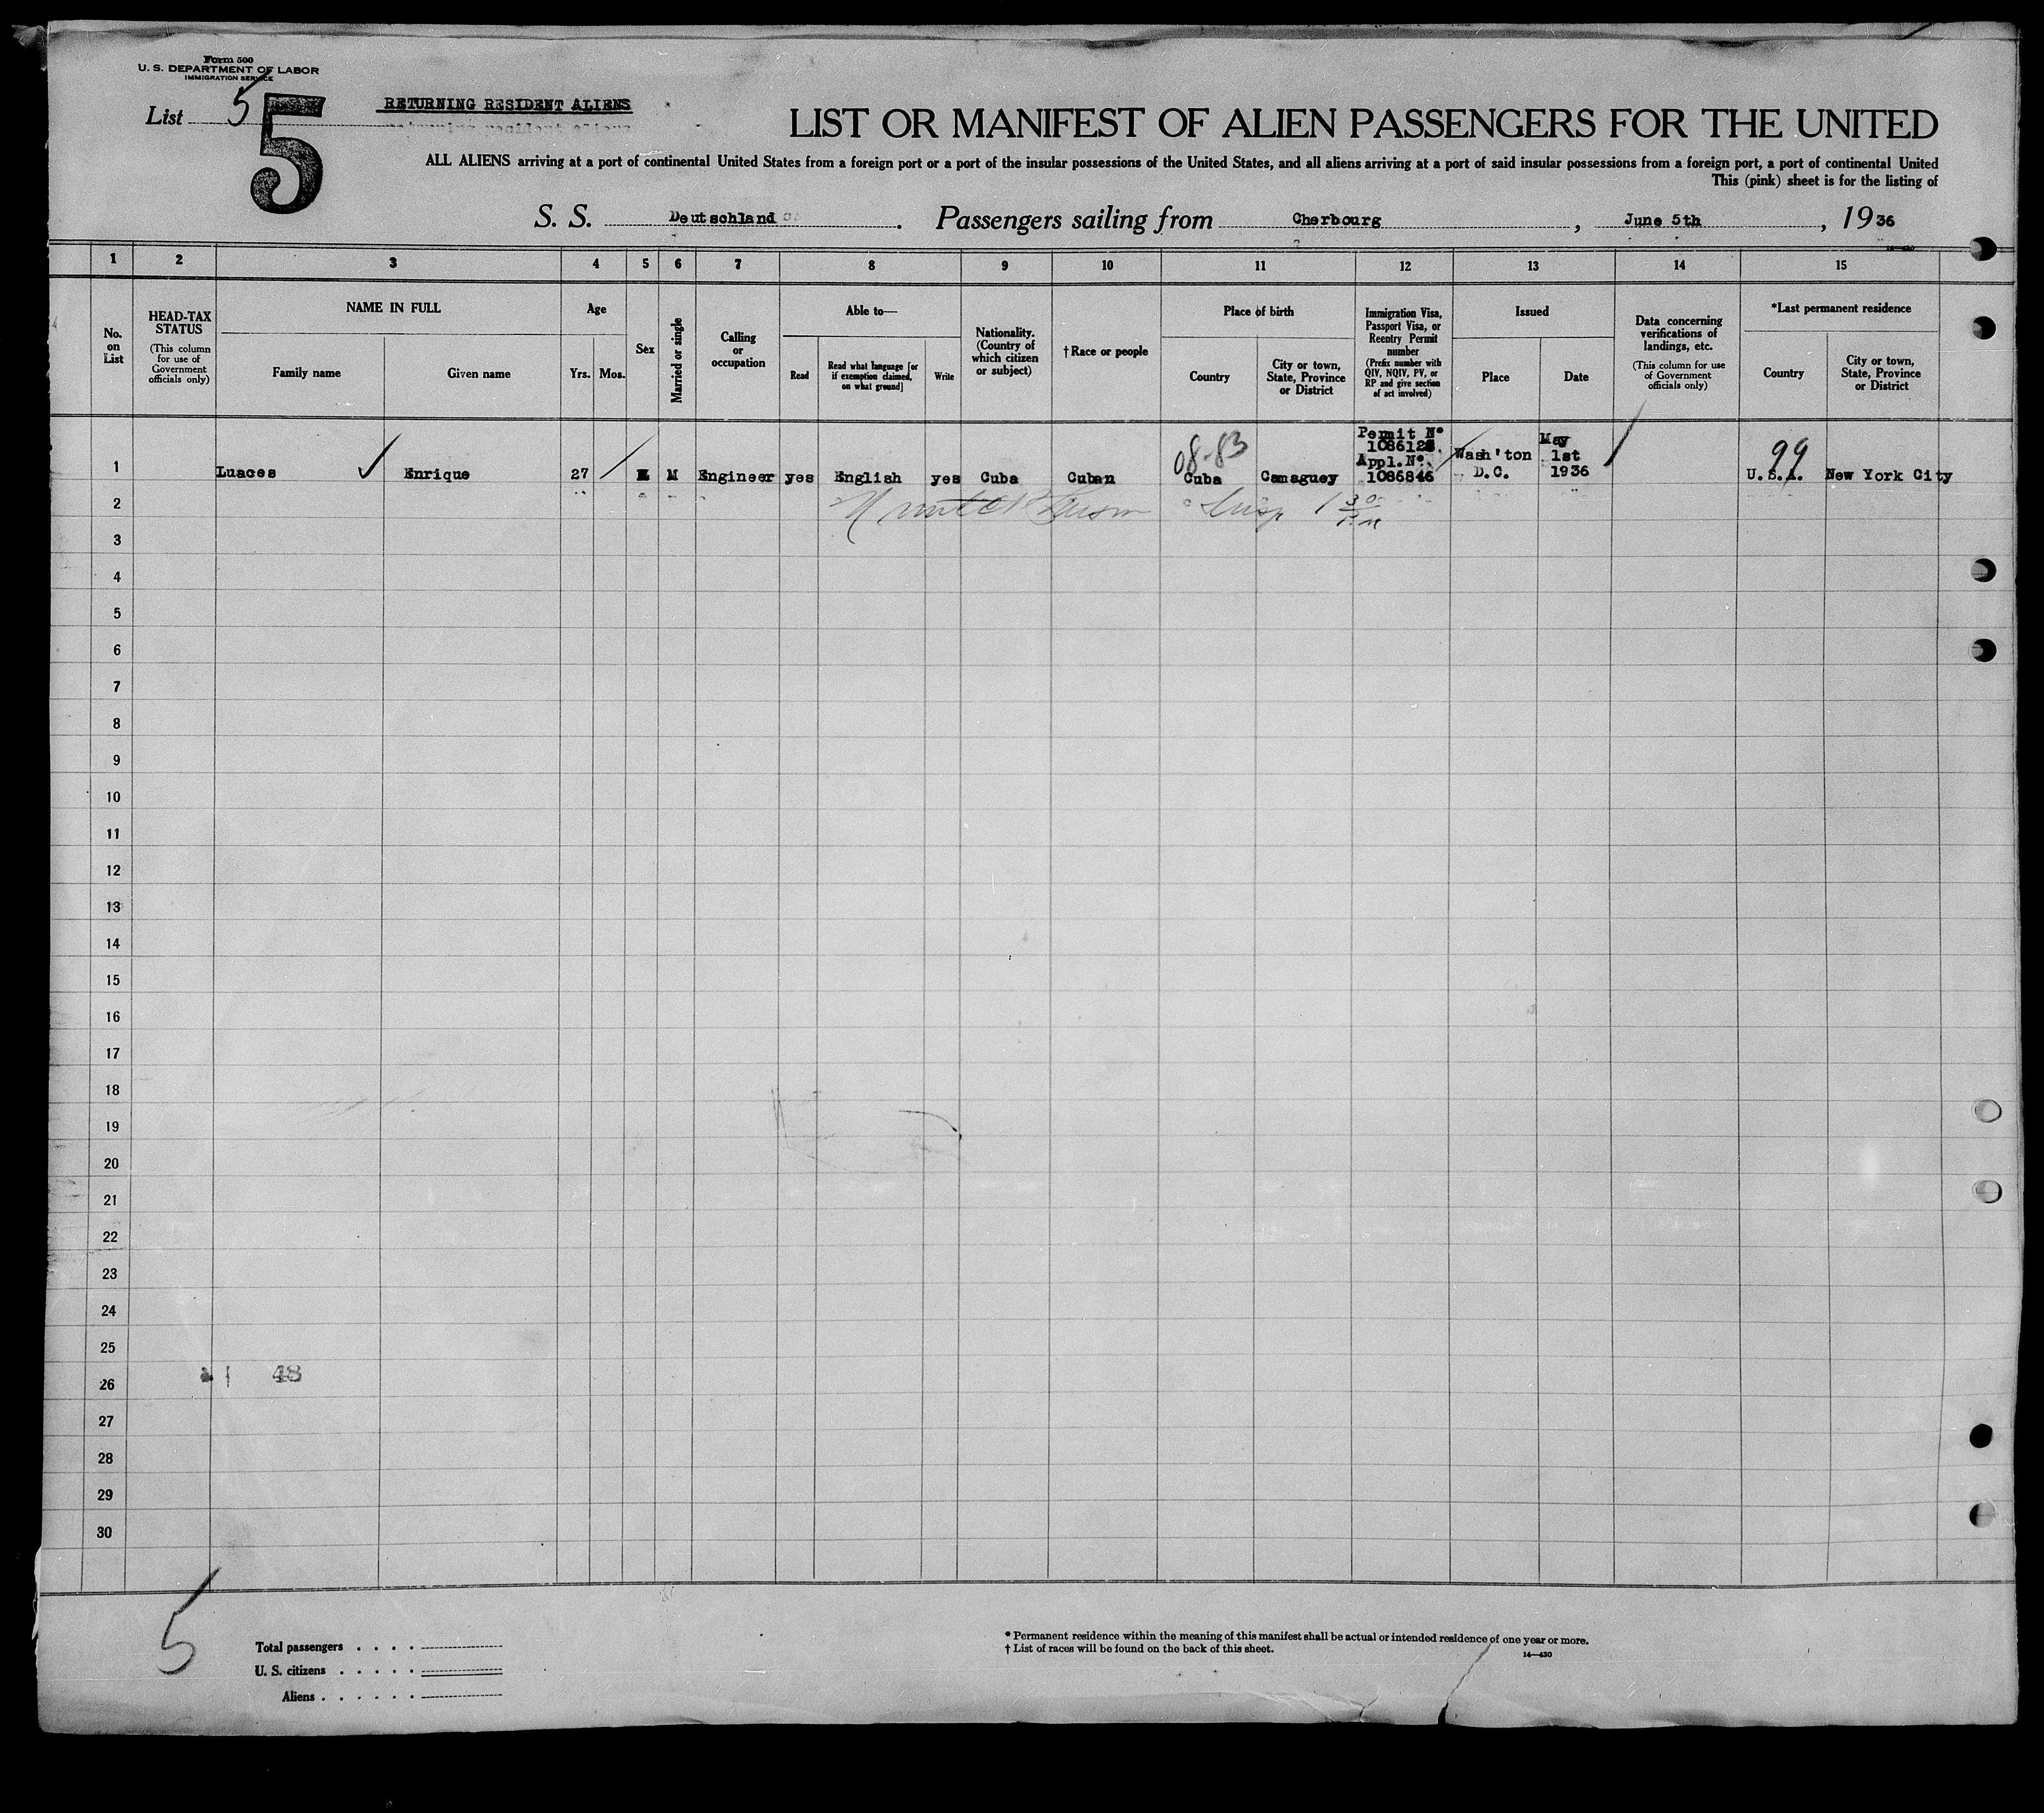 Form 500
U. S. DEPARTMENT OF LABOR
IMMIGRATION SERVICE
List 5
5
RETURNING RESIDENT ALIENS
LIST OR MANIFEST OF ALIEN PASSENGERS FOR THE UNITED
ALL ALIENS arriving at a port of continental United States from a foreign port or a port of the insular possessions of the United States, and all aliens arriving at a port of said insular possessions from a foreign port, a port of continental United
This (pink) sheet is for the listing of
S. S. Deutschland . Passengers sailing from Cherbourg , June 5th , 1936
14—430
1 2 3 4 5 6 7 8 9 10 11 12 13 14 15
No. on List
HEAD-TAX STATUS
(This column for use of Government officials only)
NAME IN FULL
Family name
Given name
Age
Yrs.
Mos.
Sex
Married or single
Calling or occupation
Able to—
Read
Read what language [or if exemption claimed, on what ground]
Write
Nationality. (Country of which citizen or subject)
† Race or people
Place of birth
Country
City or town, State, Province or District
Immigration Visa, Passport Visa, or Reentry Permit number
(Prefix number with QIV, NQIV, PV, or RP and give section of act involved)
Issued
Place
Date
Data concerning verifications of landings, etc.
(This column for use of Government officials only)
*Last permanent residence
Country
City or town, State, Province or District
1 Luaces Enrique 27 M Engineer yes English yes Cuba Cuban 08-83 Cuba Camaguey Permit No Appl. No. 1086846 Wash'ton D.C. May 1st 1936 99 U.S.A. New York City
2
3
4
5
6
7
8
9
10
11
12
13
14
15
16
17
18
19
20
21
22
23
24
25
26 48
27
28
29
30
5
Total passengers . . . .
U. S. citizens . . . . .
Aliens . . . . . .
* Permanent residence within the meaning of this manifest shall be actual or intended residence of one year or more.
† List of races will be found on the back of this sheet.
14—430